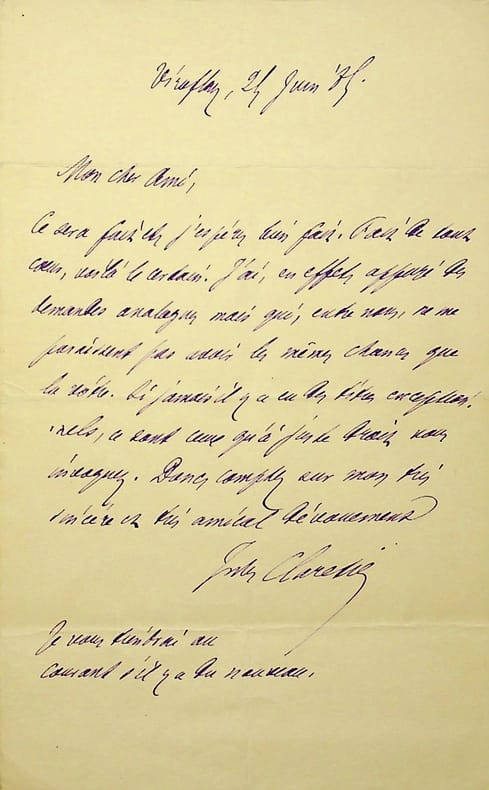 Viroflay, 25 Juin 85.
Mon cher Ami,
Ce sera fait et, j'espère, bien fait. Fait de tout
cœur, voilà le certain. J'ai, en effet, appuyé des
demandes analogues mais qui, entre nous, ne me
paraissent pas avoir les mêmes chances que
la vôtre. Si jamais il y a eu des titres exception-
nels, ce sont ceux qu'à juste droit vous
invoquez. Donc, comptez sur mon très
sincère et très amical dévouement
Jules Claretie
Je vous tiendrai au
courant s'il y a du nouveau.